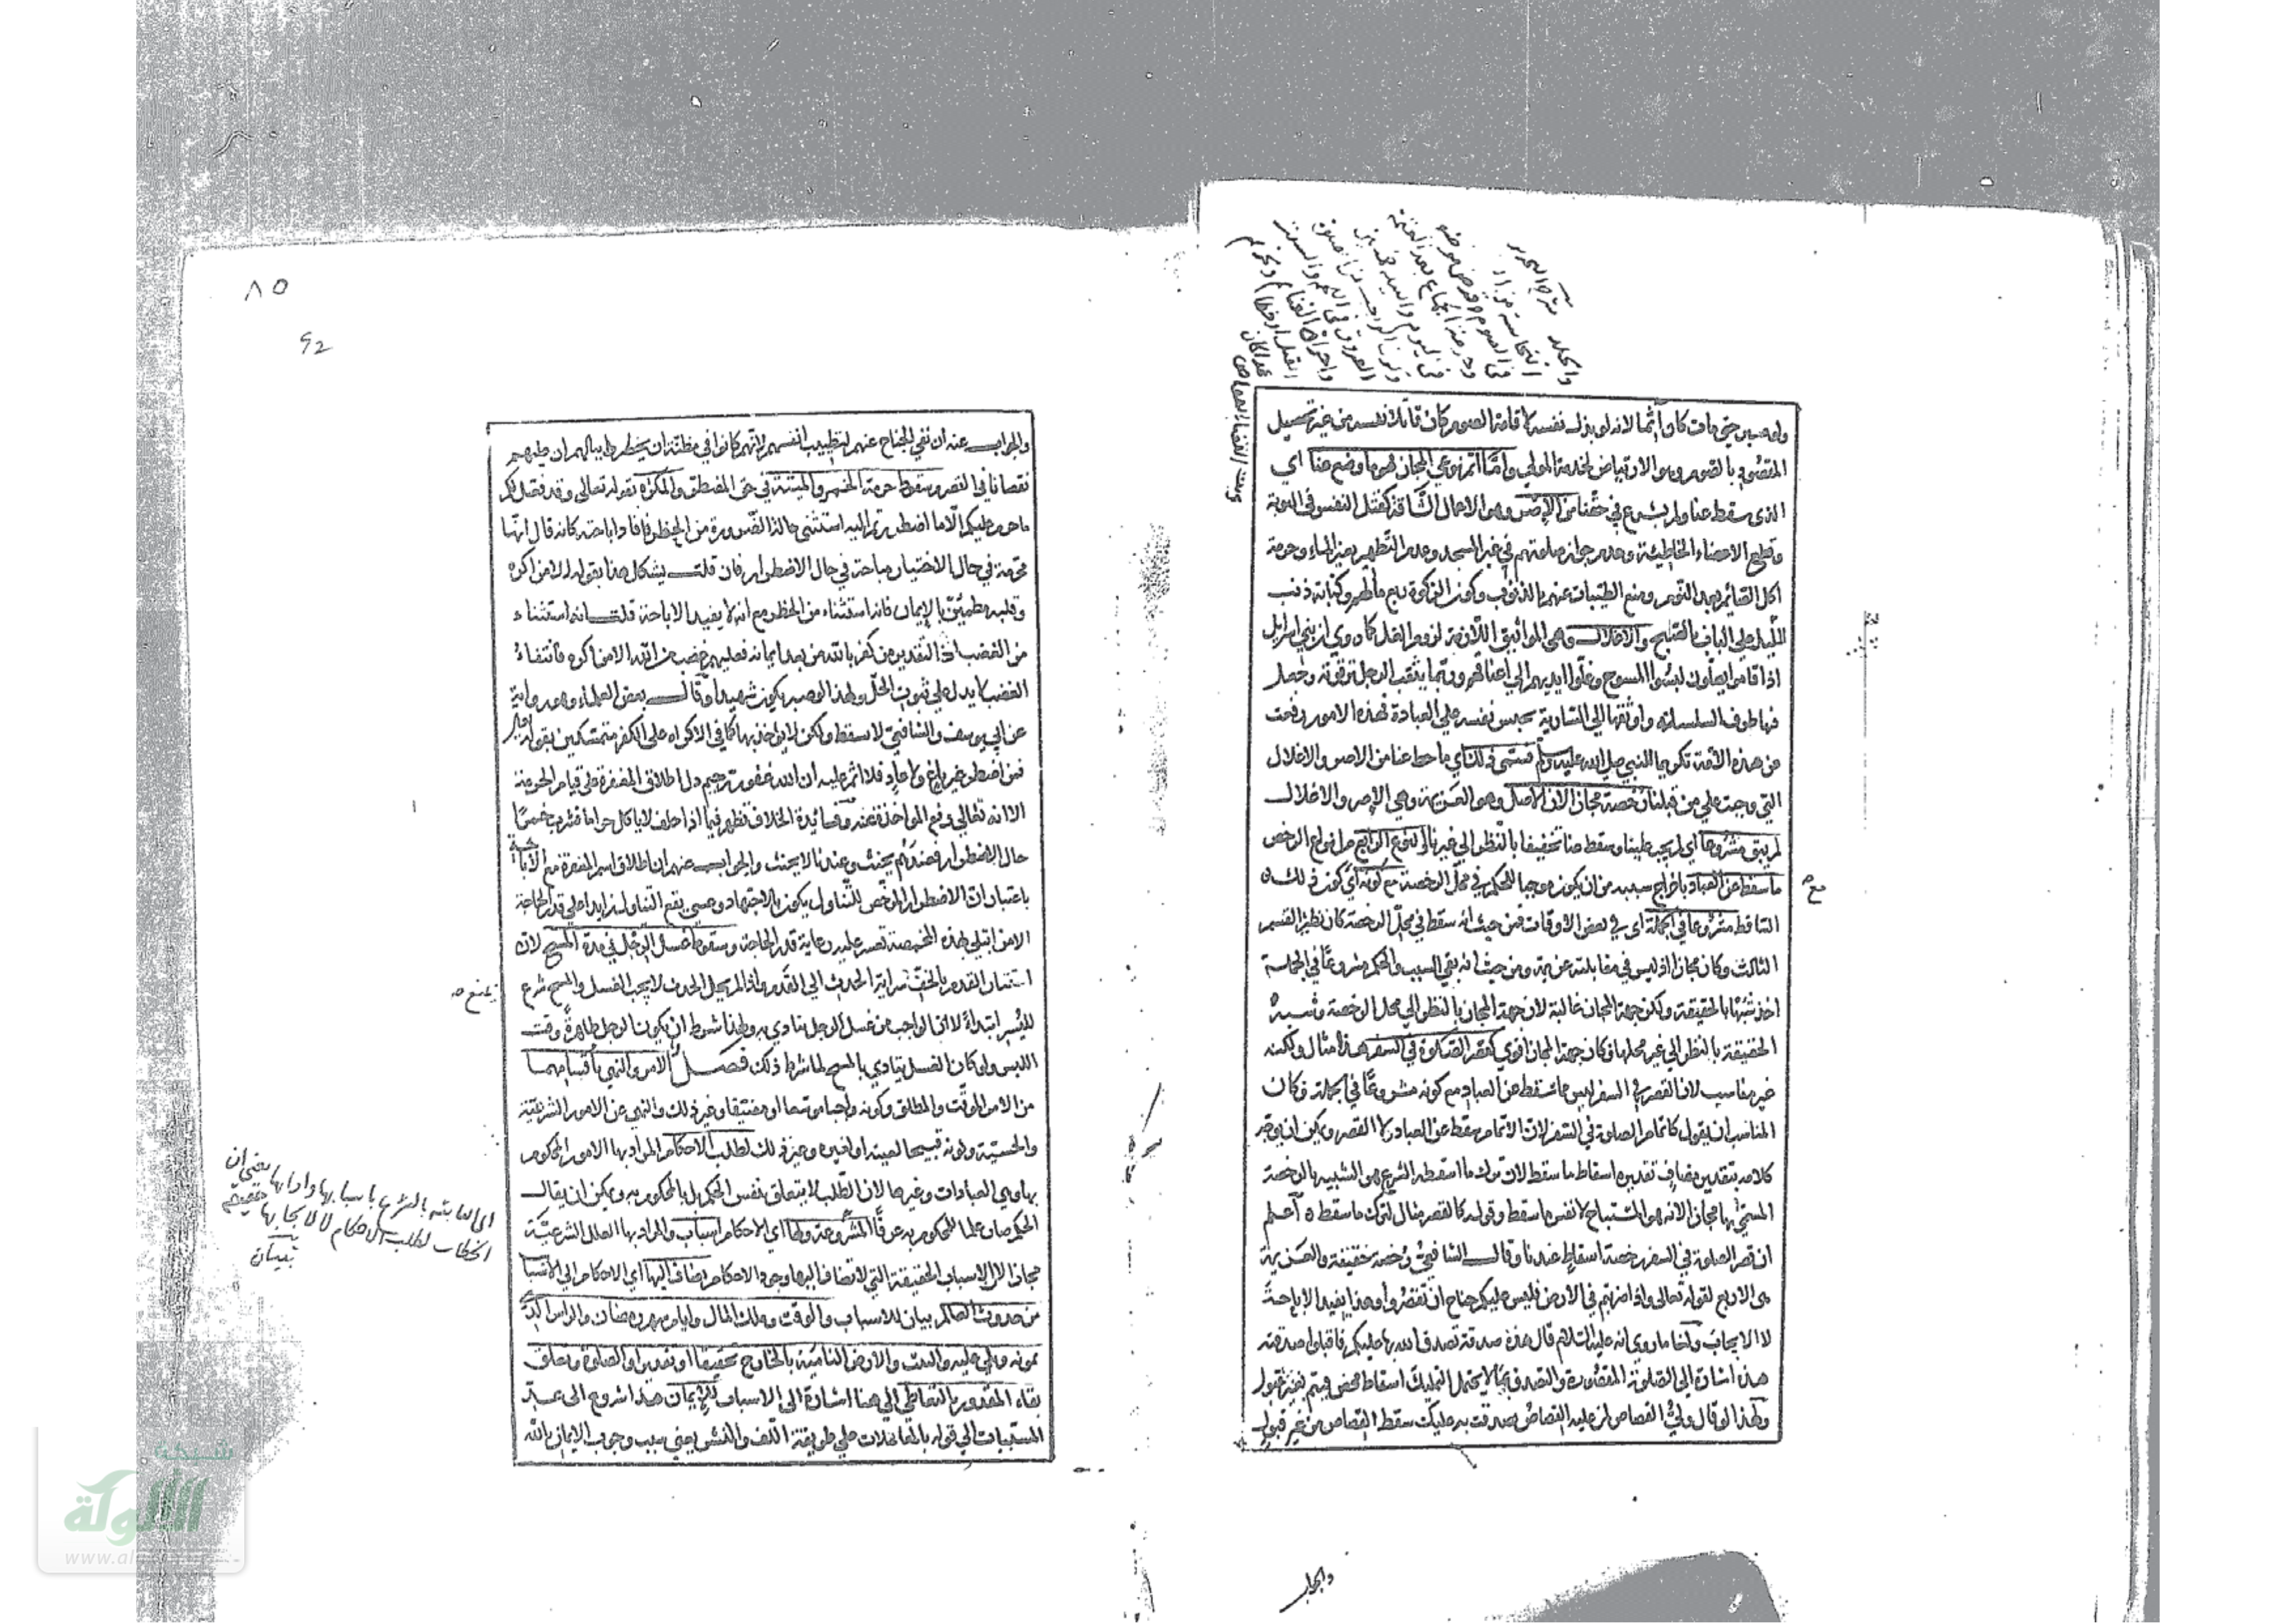 ولو صبر حتى مات كان آثما لانه لو بذل نفسه لاقامة الصوم كان قاتلا نفسه من غير تحصيل
المقصود بالصوم وهو الارتياض لخدمة المولى واما اتم نوعي المجاز فهو ما وضع عنا اي
الذي سقط عنا ولم يشرع في حقنا من الإصر وهو الاعمال الشاقة كقتل النفس في التوبة
وقطع الاعضاء الخاطئة وعدم جواز صلوتهم في غير المسجد وعدم التطهير بغير الماء وحرمة
اكل الصائم بعد النوم ومنع الطيبات عنهم بالذنوب وكون الزكوة ربع مالهم وكتابة ذنب
الليل على الباب بالصبح والاغلال وهي المواثيق اللازمة لزوم الغل كما روي ان بني اسرائيل
اذا قاموا يصلون لبسوا المسوح وغلوا ايديهم الى اعناقهم وربما يثقب الرجل ترقوته وجعل
فيها طرف السلسلة واوثقها الى السارية يحبس نفسه على العبادة فهذه الامور رفعت
عن هذه الأمة تكريما للنبي صلى الله عليه وسلم فتسمى ذلك اي ما حط عنا من الاصر والاغلال
التي وجبت على من قبلنا رخصة مجازا لان الاصل وهو العزيمة وهي الإصر والاغلال
لم يبق مشروعا اي لم يجب علينا وسقط عنا تخفيفا بالنظر الى غيرنا والنوع الرابع من انواع الرخص
ما سقط عن العباد باخراج سببه من ان يكون موجبا للحكم في محل الرخصة مع كونه اي كون ذلك
الساقط مشروعا في الجملة اي في بعض الاوقات فمن حيث انه سقط في محل الرخصة كان نظير القسم
الثالث وكان مجازا اذ ليس في مقابلته عزيمة ومن حيث انه بقي السبب والحكم مشروعا في الجملة
اخذ شبها بالحقيقة ولكن جهة المجاز غالبة لان جهة المجاز بالنظر الى محل الرخصة وشبه
الحقيقة بالنظر الى غير محلها فكان جهة المجاز اقوى كقصر الصلوة في السفر هذا مثال ولكنه
غير مناسب لان القصر في السفر ليس مما سقط عن العباد مع كونه مشروعا في الجملة فكان
المناسب ان يقول كاتمام الصلوة في السفر لان الاتمام سقط عن العباد لا القصر ويمكن ان يوجه
كلامه بتقدير مضاف تقديره اسقاط ما سقط لان ترك ما اسقطه الشرع هو الشبيه بالرخصة
المسمى بها مجازا لانه هو المستباح لا نفس ما سقط وقوله كالقصر مثال لترك ما سقط اعلم
ان قصر الصلوة في السفر رخصة اسقاط عندنا وقال الشافعي رخصة حقيقة والعزيمة
هي الاربع لقوله تعالى واذا ضربتم في الارض فليس عليكم جناح ان تقصروا وهذا يفيد الإباحة
لا الايجاب ولنا ما روي انه عليه السلام قال هذه صدقة تصدق الله بها عليكم فاقبلوا صدقته
هذه اشارة الى الصلوة المقصورة والتصدق بما لا يحتمل التمليك اسقاط محض فيتم بغير قبول
ولهذا لو قال ولي القصاص لمن عليه القصاص تصدقت به عليك سقط القصاص من غير قبول
والجواب
٨٥
والجواب عنه ان نفي الجناح عنهم لتطييب انفسهم لانهم كانوا في مظنة ان يخطر ببالهم ان عليهم
نقصانا في القصر وسقوط حرمة الخمر والميتة في حق المضطر والمكره لقوله تعالى وقد فصل لكم
ما حرم عليكم الا ما اضطررتم اليه استثنى حالة الضرورة من الحظر فافاد اباحته كانه قال انها
محرمة في حال الاختيار مباحة في حال الاضطرار فان قلت يشكل هذا بقوله الا من اكره
وقلبه مطمئن بالإيمان فانه استثناء من الحظر مع انه لا يفيد الاباحة قلت انه استثناء
من الغضب اذ التقدير من كفر بالله من بعد ايمانه فعليهم غضب من الله الا من اكره فانتفاء
الغضب لا يدل على ثبوت الحل ولهذا لو صبر يكون شهيدا وقال بعض العلماء وهو رواية
عن ابي يوسف والشافعي لا سقط ولكن لا يؤاخذ بها كما في الاكراه على الكفر متمسكين بقوله تعالى
فمن اضطر غير باغ ولا عاد فلا اثم عليه ان الله غفور رحيم دل اطلاق المغفرة على قيام الحرمة
الا انه تعالى رفع المواخذة عنه وفائدة الخلاف تظهر فيما اذا حلف لا ياكل حراما فشرب خمرا
حال الاضطرار فعندهم يحنث وعندنا لا يحنث والجواب عنهم ان اطلاق اسم المغفرة مع الاباحة
باعتبار ان الاضطرار المرخص للتناول يكون بالاجتهاد وعسى يقع التناول زايدا على قدر الحاجة
لان من ابتلي بهذه المخمصة تعسر عليه رعاية قدر الحاجة وسقوط غسل الرجل في مدة المسح لان
استتار القدم بالخف سراية الحدث الى القدم واذا لم يحل الحدث لا يجب الغسل والمسح شرع
لليسر ابتداء لا ان الواجب من غسل الرجل يتادى به ولهذا شرط ان يكون الرجل طاهرة وقت
اللبس ولو كان الغسل يتادى بالمسح لما شرط ذلك فصل الامر والنهي باقسامهما
من الامر الموقت والمطلق وكونه واجبا موسعا او مضيقا وغير ذلك والنهي عن الامور الشرعية
والحسية وكونه قبيحا لعينه او لغيره وغير ذلك لطلب الاحكام المراد بها الامور المحكوم
بها وهي العبادات وغيرها لان الطلب لا يتعلق بنفس الحكم بل بالمحكوم به ويمكن ان يقال
الحكم صار علما للمحكوم به عرفا المشروعة ولها اي للاحكام اسباب والمراد بها العلل الشرعية
مجازا لا الاسباب الحقيقية التي لا تضاف اليها وجود الاحكام تضاف اليها اي الاحكام الى الاسباب
من حدوث العالم بيان للاسباب والوقت وملك المال وايام شهر رمضان والراس الذي
يمونه ويلي عليه والبيت والارض النامية بالخارج تحقيقا او تقديرا والصلوة وتعلق
بقاء المقدور بالتعاطي الى هنا اشارة الى الاسباب للإيمان هذا شروع الى عد
المسببات الى قوله بالمعاملات على طريقة اللف والنشر يعني سبب وجوب الايمان بالله
يمنع صح
اي الثابتة بالشرع باسبابها
الخطاب لطلب الاحكام
تبيان
شبكة
الألوكة